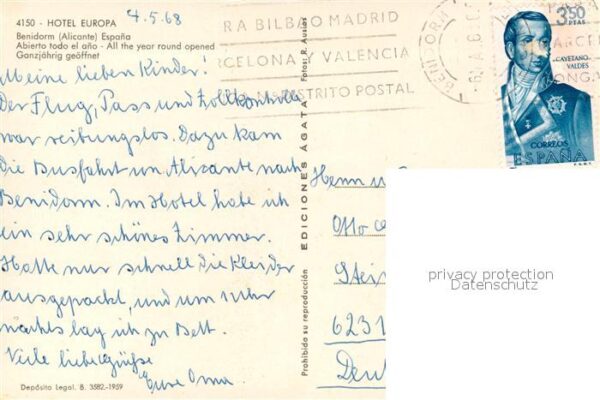 4150 - HOTEL EUROPA
Benidorm (Alicante) España
Abierto todo el año - All the year round opened
Ganzjährig geöffnet
4.5.68
Meine lieben Kinder!
Der Flug, Pass und Zollkontrolle
war reibungslos. Dazu kam
die Busfahrt von Alicante nach
Benidorm. Im Hotel habe ich
ein sehr schönes Zimmer.
Hatte nur schnell die Kleider
ausgepackt, und um Uhr
nachts lag ich zu Bett.
Viele liebe Grüße
Eure Oma.
Depósito Legal. B. 3582.-1959
Prohibida su reproducción
EDICIONES ÁGATA
Fotos: R. Ausias
RA BILBAO MADRID
RCELONA Y VALENCIA
POSTAL
BENIDORM
3'50
PTAS
CAYETANO
VALDES
CORREOS
ESPAÑA
Herrn
Otto
Stei
6231
Deu
privacy protection
Datenschutz